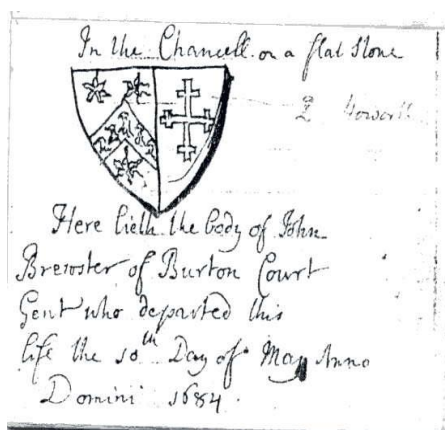 In the Chancell on a flat stone
Here lieth the body of John
Brewster of Burton Court
Gent who departed this
life the 10th Day of May Anno
Domini 1684.